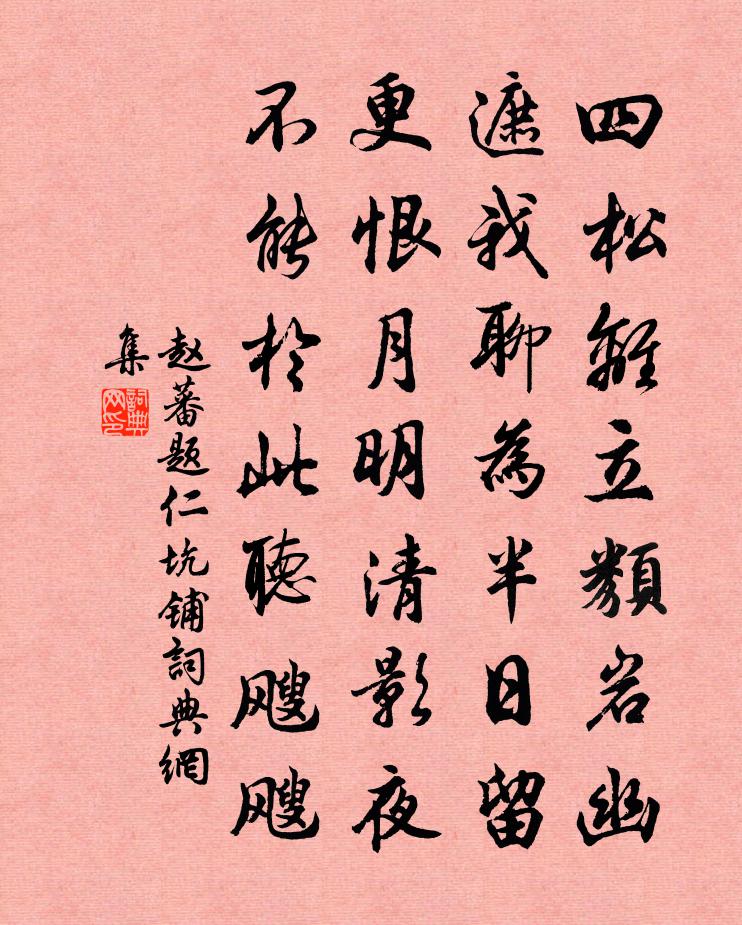 四松离立類岩幽
遮我聊為半日留
更恨月明清影夜
不能於此聽飕飕
赵蕃題仁坑铺詞典網
集
詞典
网印